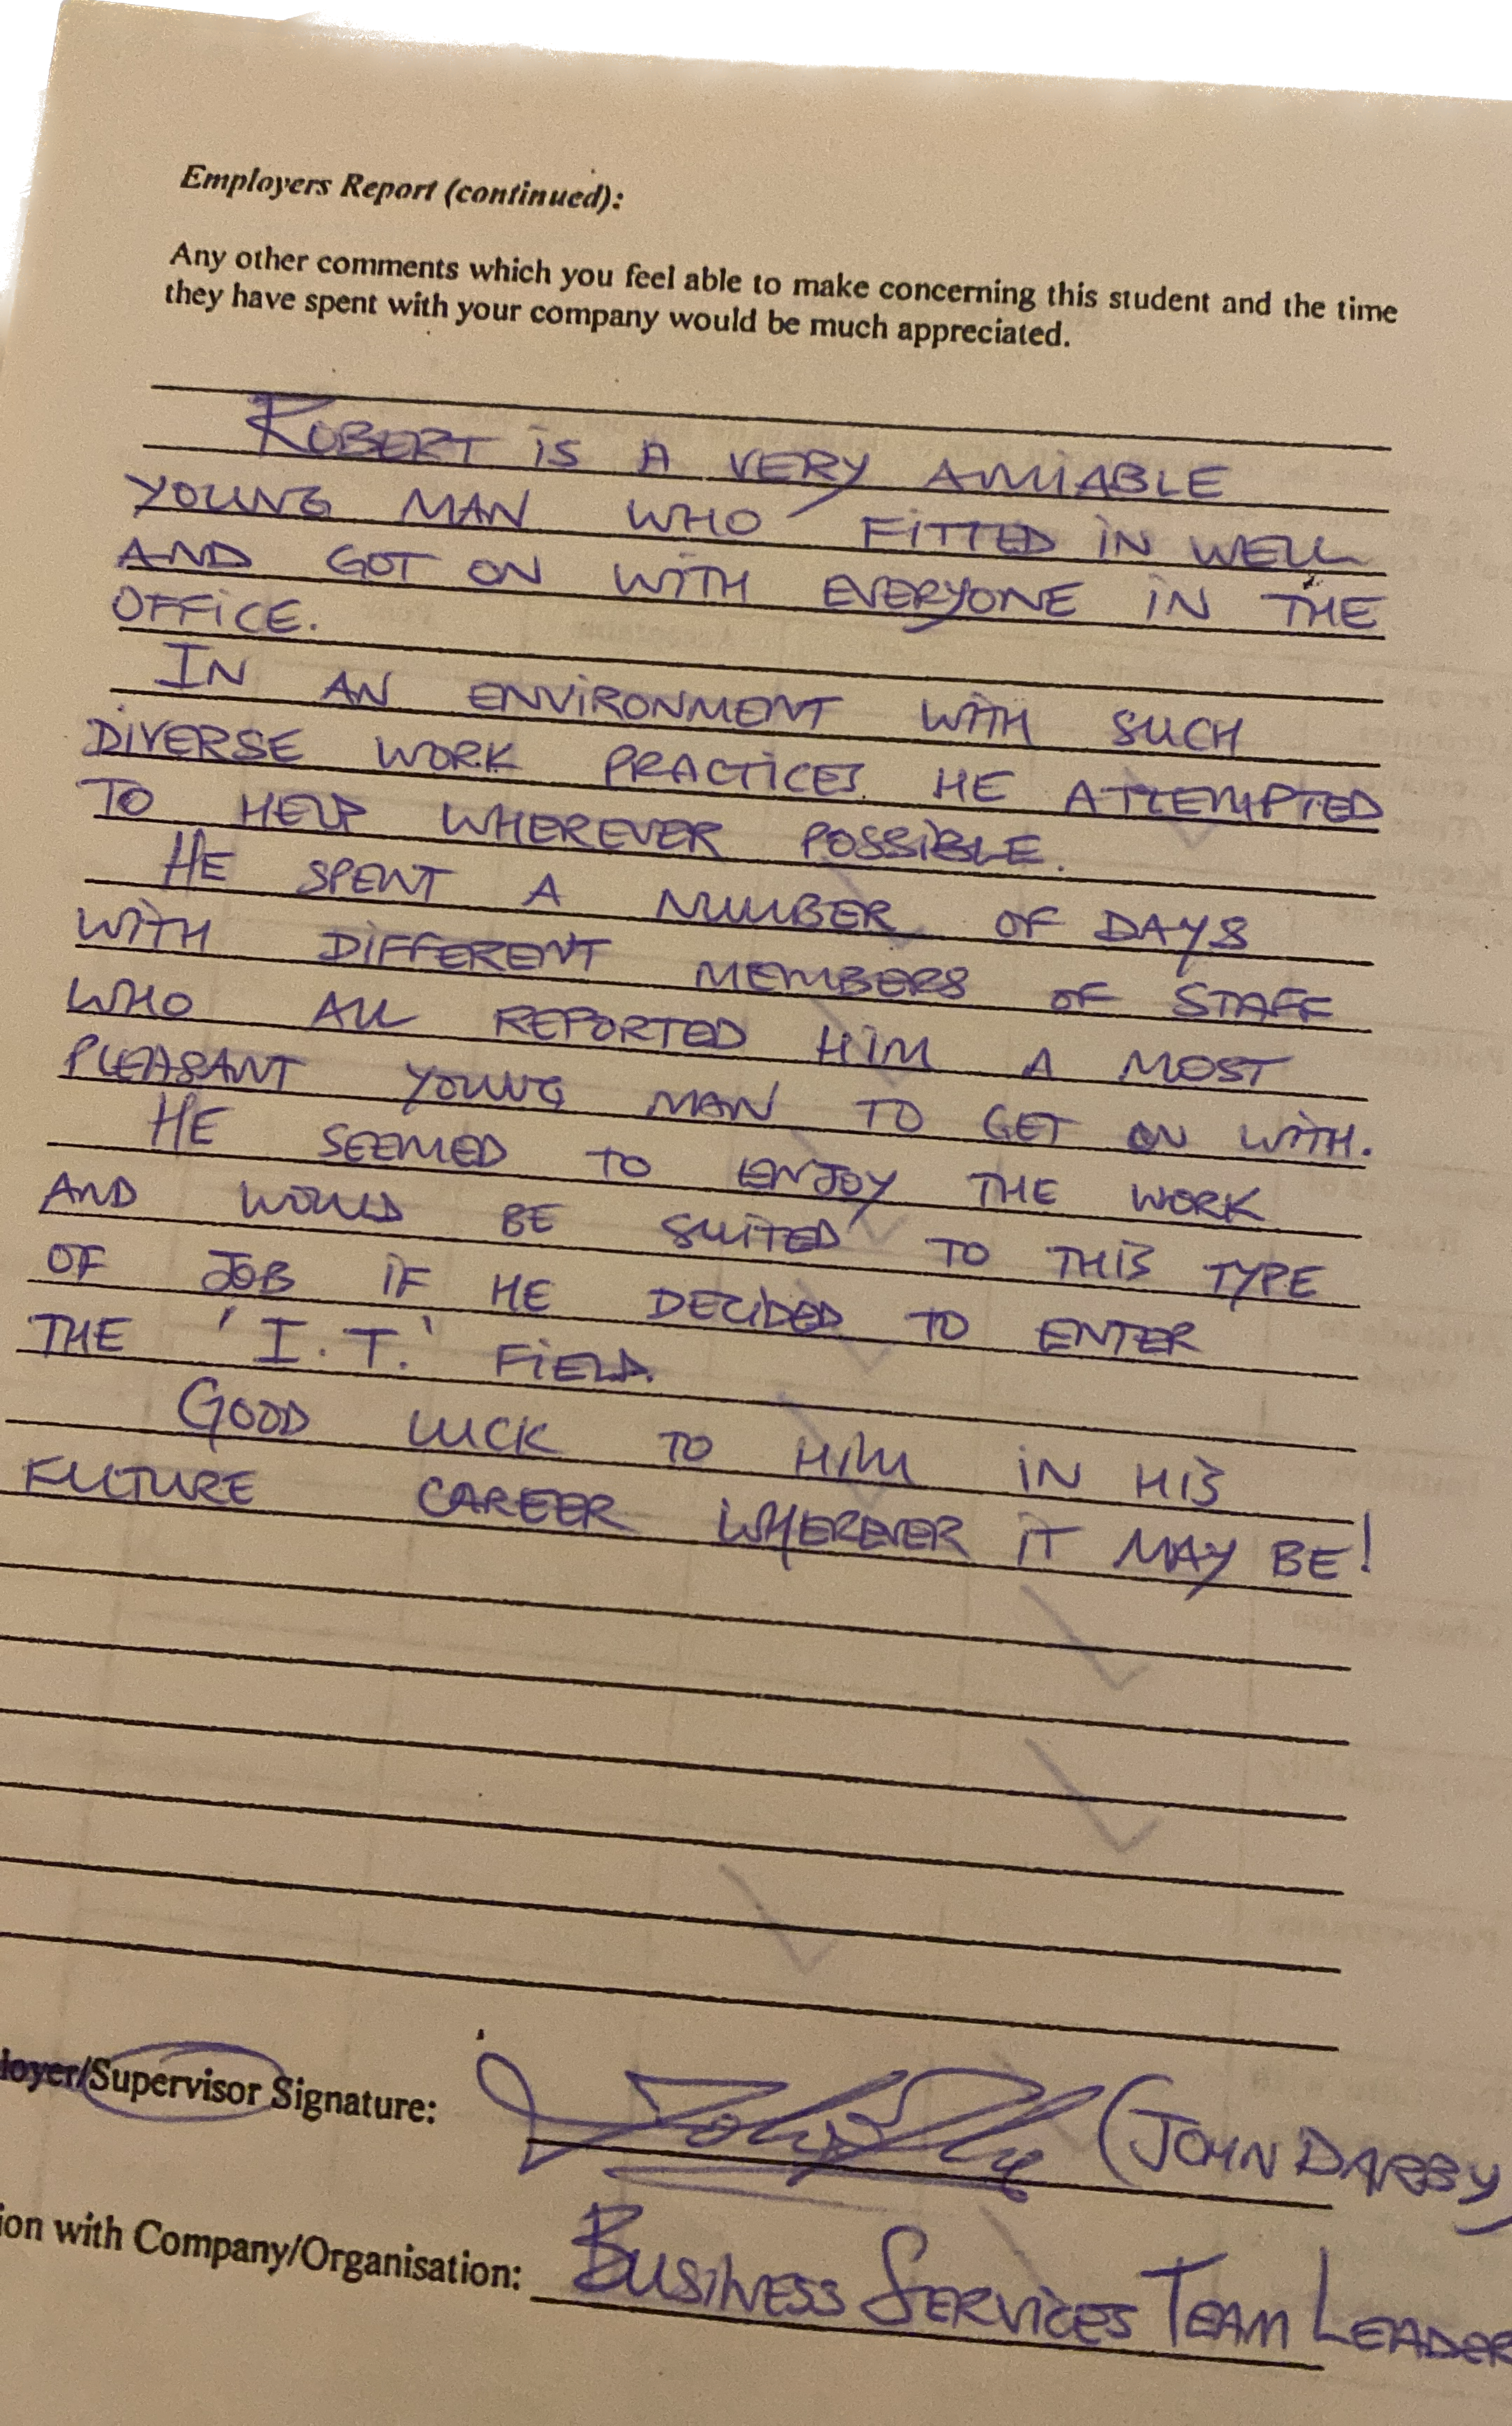 Employers Report (continued):
Any other comments which you feel able to make concerning this student and the time
they have spent with your company would be much appreciated.
ROBERT IS A VERY AMIABLE
YOUNG MAN WHO FITTED IN WELL
AND GOT ON WITH EVERYONE IN THE
OFFICE.
IN AN ENVIRONMENT WITH SUCH
DIVERSE WORK PRACTICES HE ATTEMPTED
TO HELP WHEREVER POSSIBLE.
HE SPENT A NUMBER OF DAYS
WITH DIFFERENT MEMBERS OF STAFF
WHO ALL REPORTED HIM A MOST
PLEASANT YOUNG MAN TO GET ON WITH.
HE SEEMED TO ENJOY THE WORK
AND WOULD BE SUITED TO THIS TYPE
OF JOB IF HE DECIDED TO ENTER
THE 'I.T.' FIELD.
GOOD LUCK TO HIM IN HIS
FUTURE CAREER WHEREVER IT MAY BE!
loyer/Supervisor Signature: (JOHN DARBY)
ion with Company/Organisation: BUSINESS SERVICES TEAM LEADER